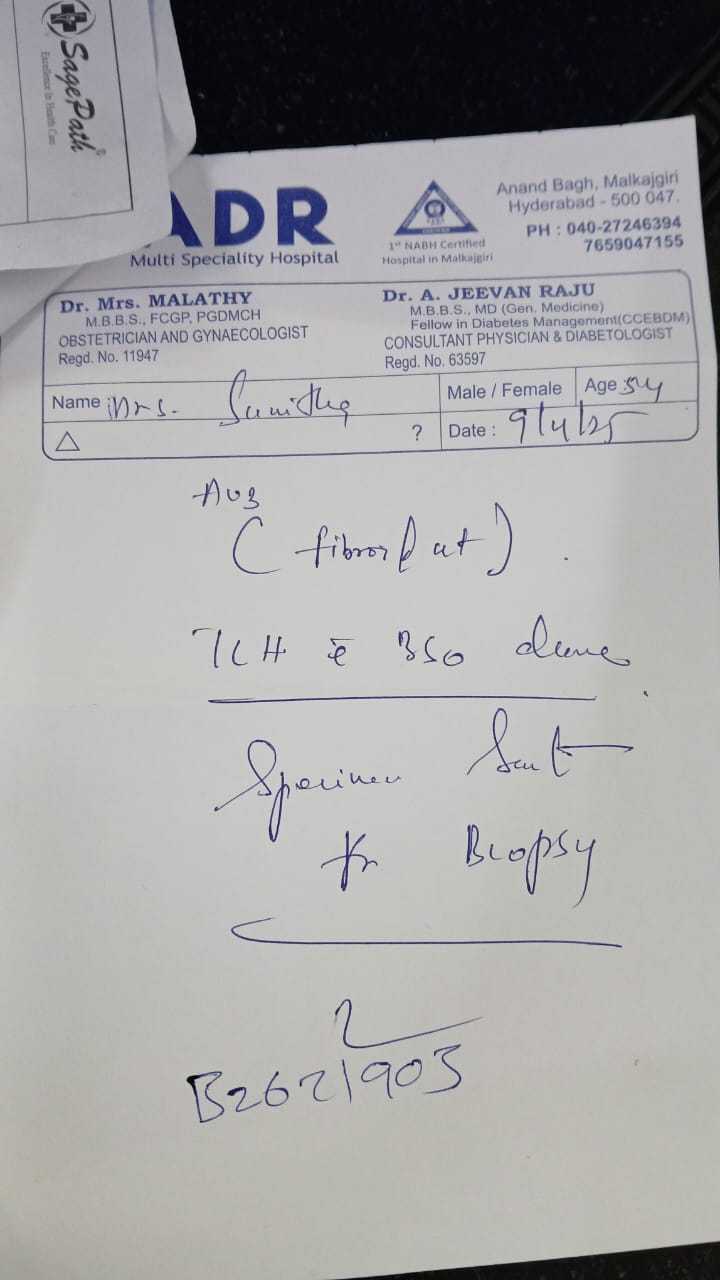 SagePath
Excellence In Health Care
ADR
Multi Speciality Hospital
1st NABH Certified
Hospital in Malkajgiri
Anand Bagh, Malkajgiri
Hyderabad - 500 047.
PH : 040-27246394
7659047155
Dr. Mrs. MALATHY
M.B.B.S., FCGP, PGDMCH
OBSTETRICIAN AND GYNAECOLOGIST
Regd. No. 11947
Dr. A. JEEVAN RAJU
M.B.B.S., MD (Gen. Medicine)
Fellow in Diabetes Management(CCEBDM)
CONSULTANT PHYSICIAN & DIABETOLOGIST
Regd. No. 63597
Name Mrs. Sunitha Male / Female Age 54
△ ? Date : 9/4/25
(fibroid ut).
TLH c̄ BSO done
Specimen Sent
for Biopsy
B2621903